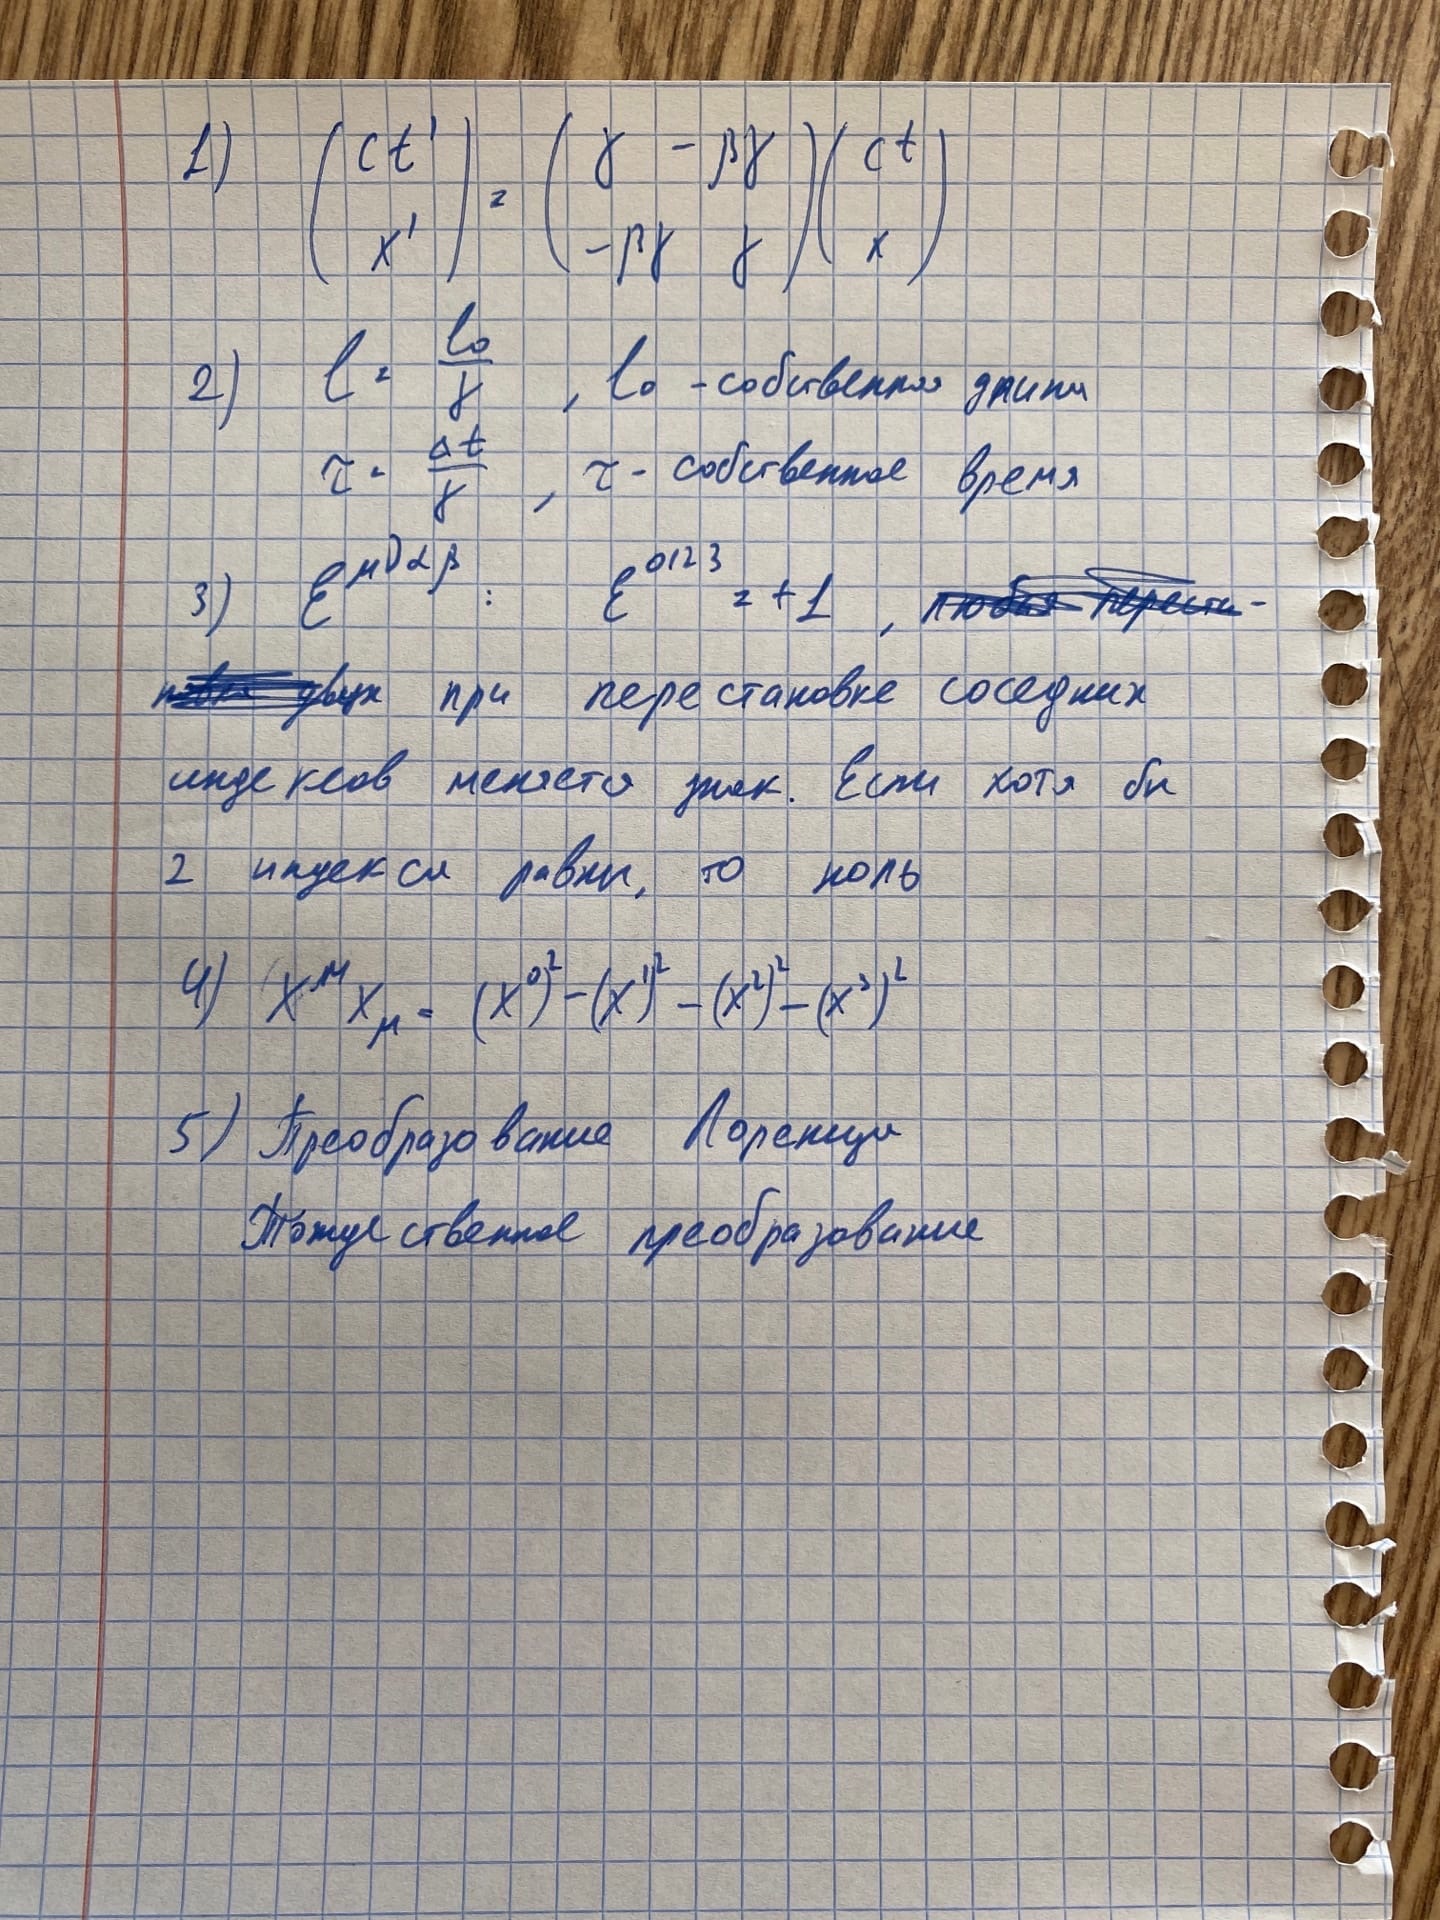 1) (ct' x') = (γ -βγ -βγ γ)(ct x)
2) l = l₀/γ , l₀ - собственная длина
τ = Δt/γ , τ - собственное время
3) ε^{μναβ} : ε^{0123} = +1 , любая переста-
новка двух при перестановке соседних
индексов меняется знак. Если хотя бы
2 индекса равны, то ноль
4) x^μ x_μ = (x⁰)² - (x¹)² - (x²)² - (x³)²
5) Преобразование Лоренца
Тождественное преобразование